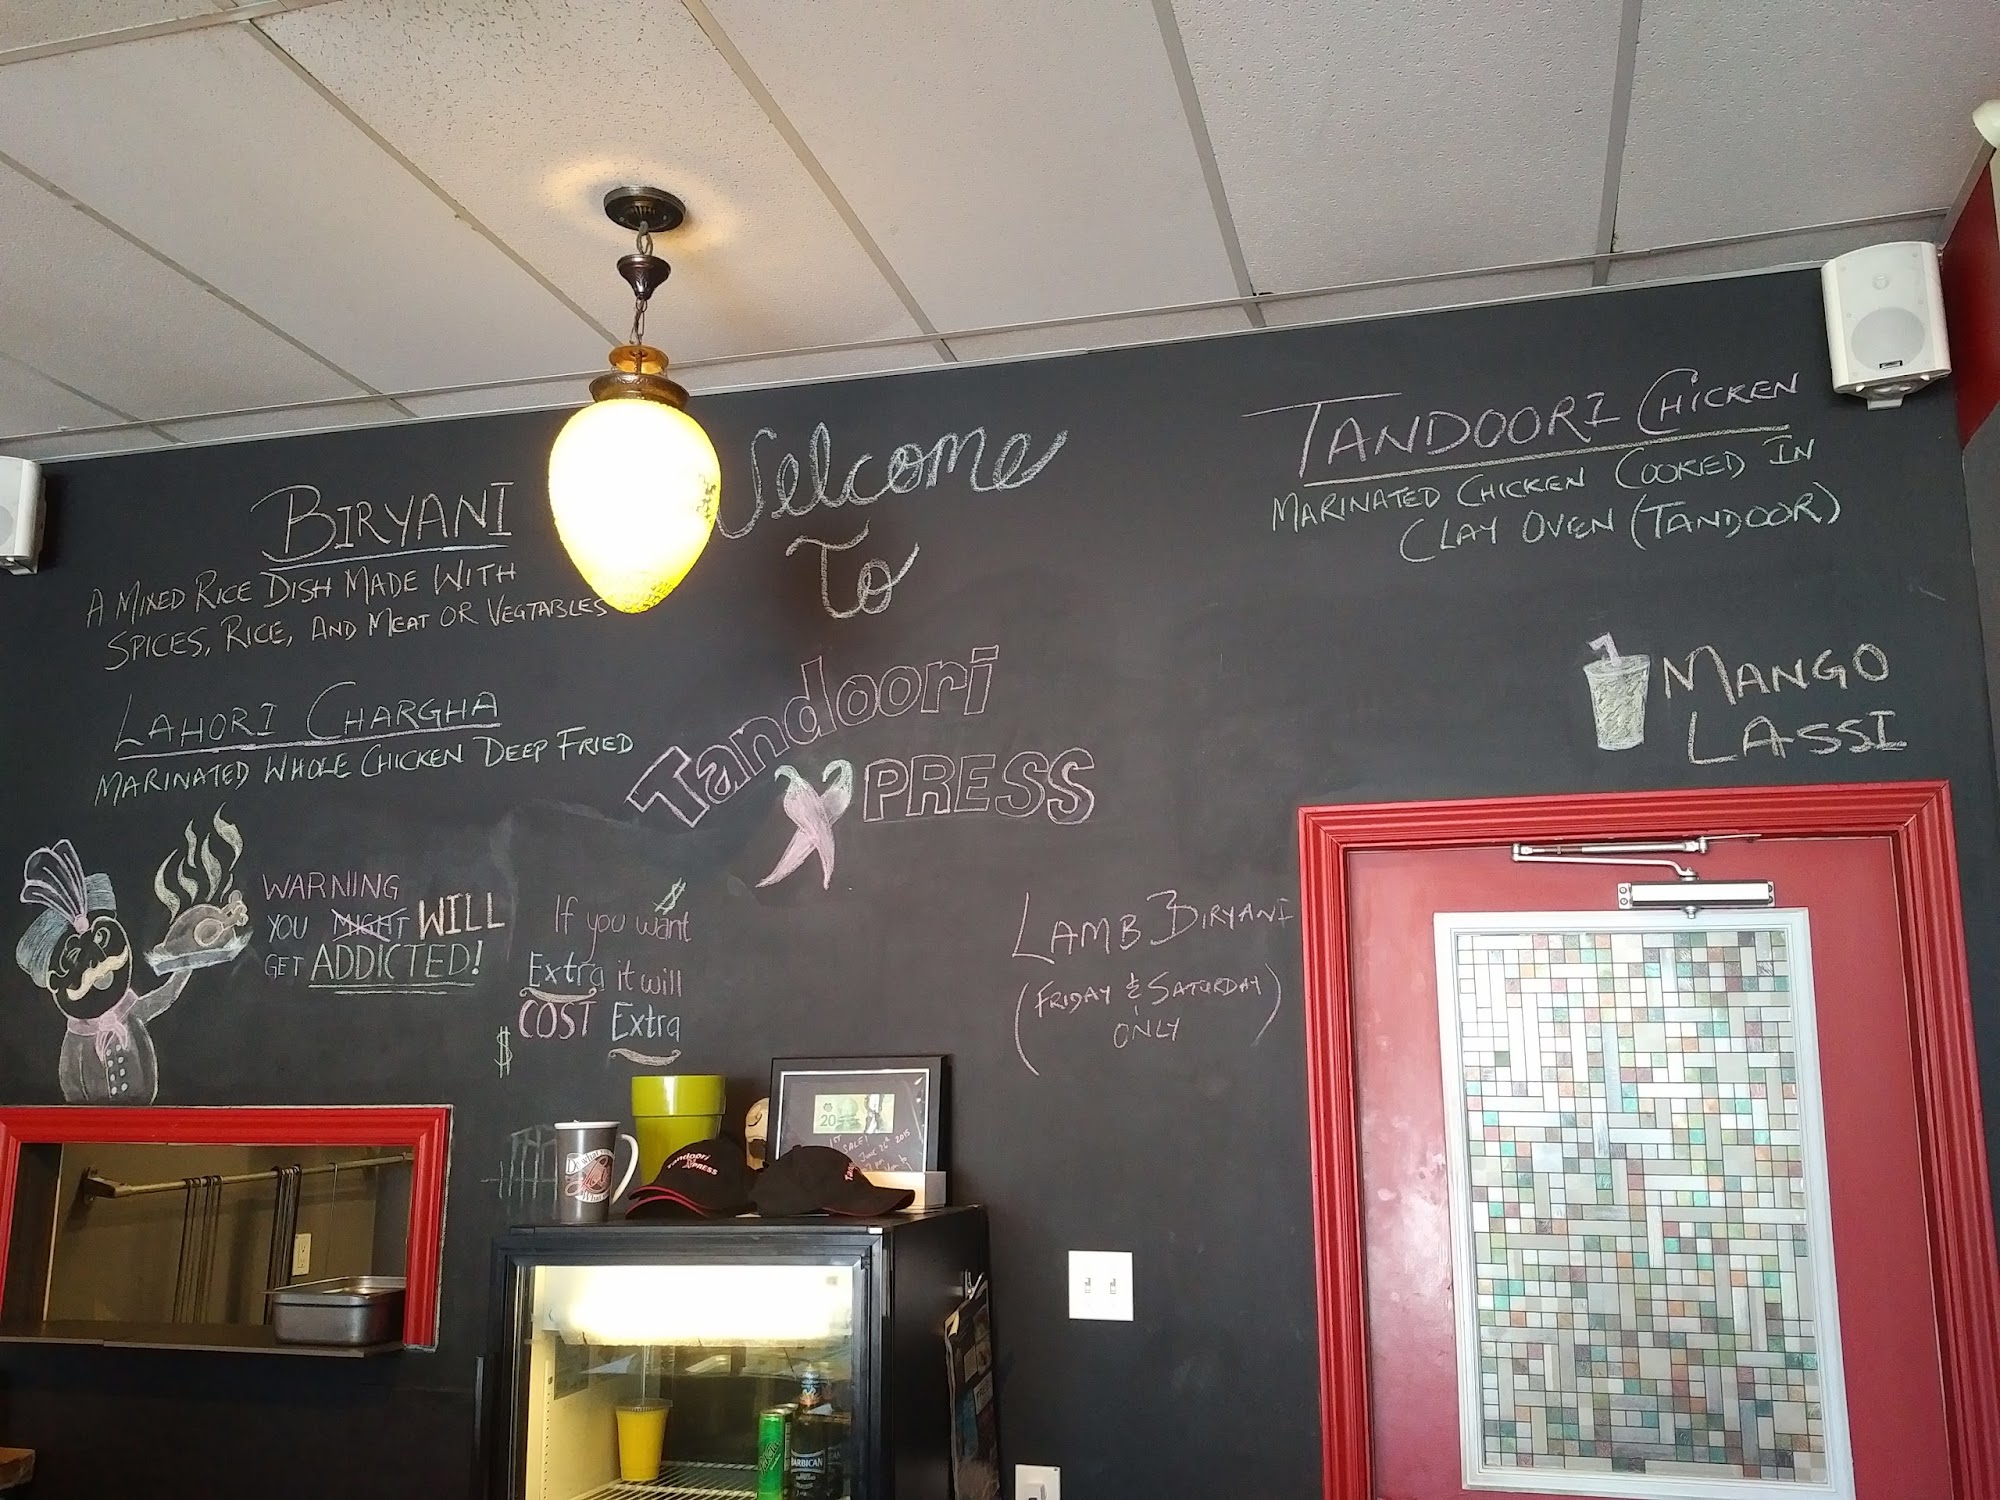 Welcome
To
Tandoori
XPRESS
BIRYANI
A MIXED RICE DISH MADE WITH
SPICES, RICE, AND MEAT OR VEGTABLES
LAHORI CHARGHA
MARINATED WHOLE CHICKEN DEEP FRIED
WARNING
YOU MIGHT WILL
GET ADDICTED!
$
If you want
Extra it will
COST Extra
$
TANDOORI CHICKEN
MARINATED CHICKEN COOKED IN
CLAY OVEN (TANDOOR)
MANGO
LASSI
LAMB BIRYANI
(FRIDAY & SATURDAY)
ONLY
20
1ST
SALE!
June 26th 2015
Tandoori
XPRESS
BARBICAN